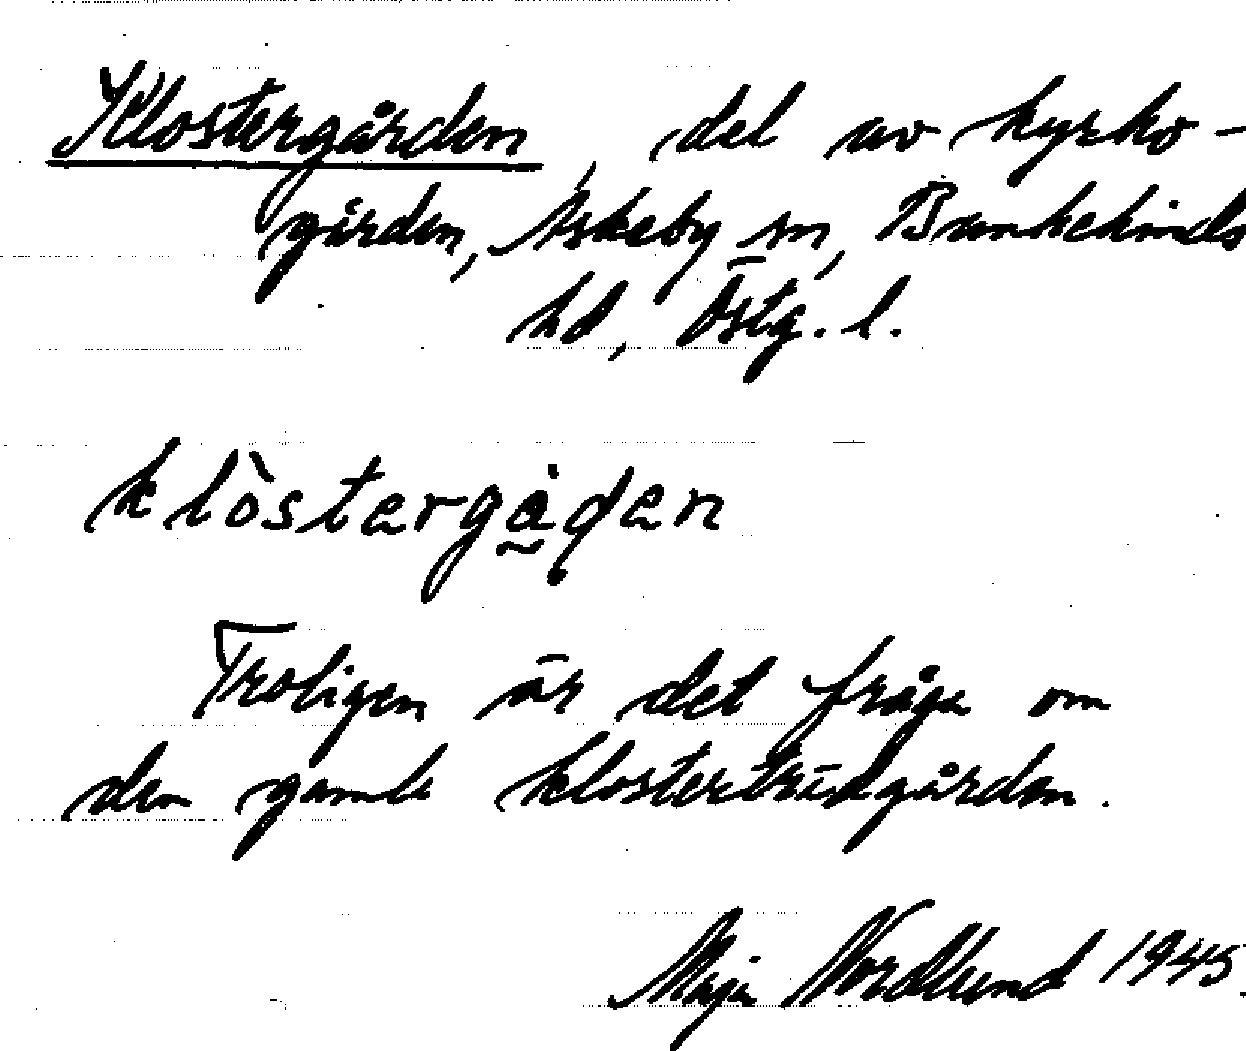 Klostergården, del av kyrko-
gården, Askeby sn, Bankekinds
hd, Östg. l.
klòstergå̰den
Troligen är det fråga om
den gamla klosterträdgården.
Maja Nordlund 1945.